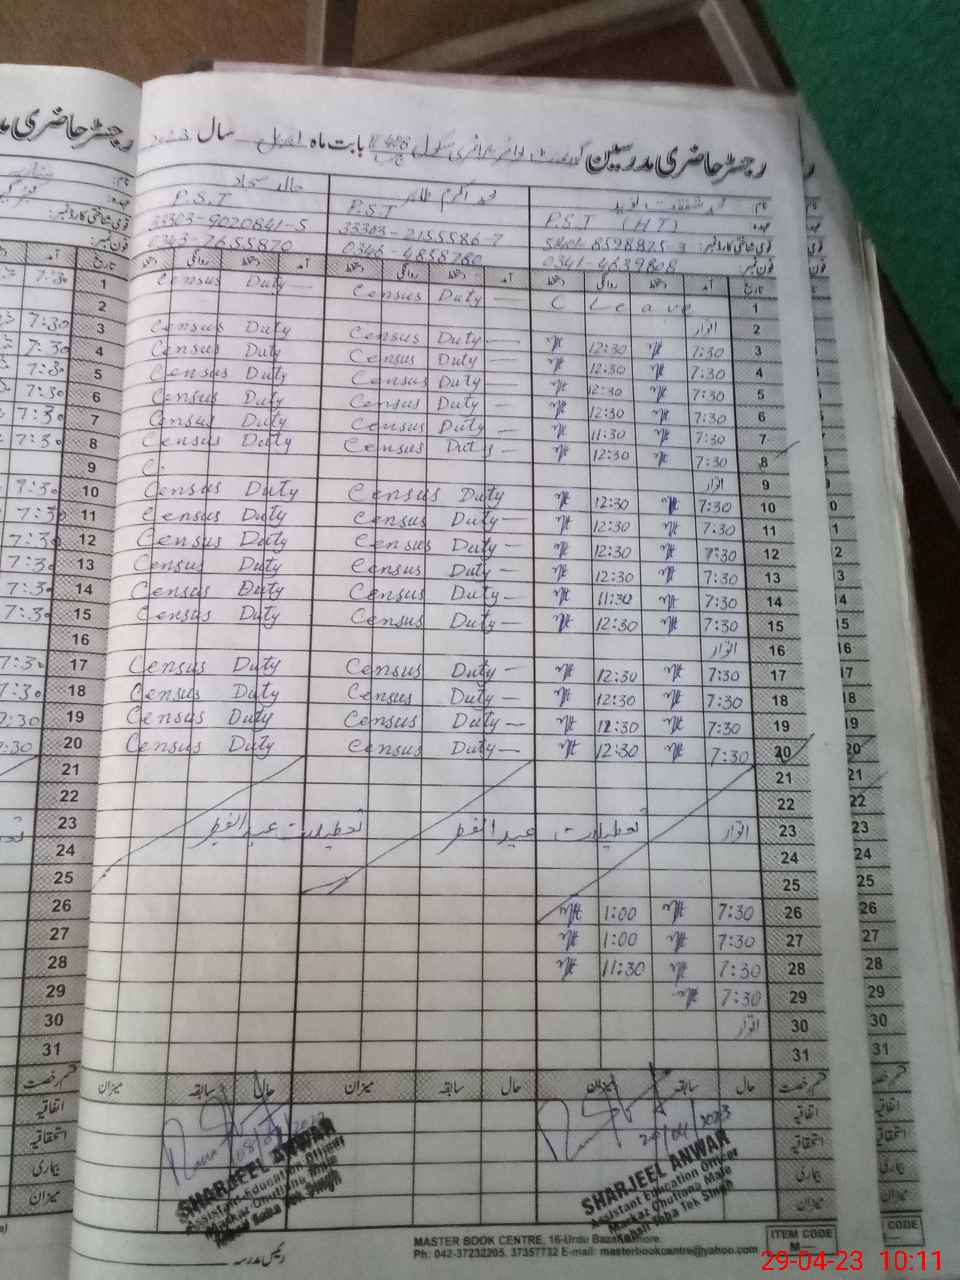 رجسٹر حاضری مدرسین گورنمنٹ سکول 408 بابت ماہ اپریل سال 2023
نام: محمد شفقت نوید محمد اکرم طاہر خالد سجاد
عہدہ: P.S.T (HT) P.S.T P.S.T
قومی شناختی کارڈ نمبر: 33303-2155586-7 33303-9020841-5
فون نمبر: 0341-4639808 0346-4858780 0343-7655870
تاریخ آمد دستخط روانگی دستخط آمد دستخط روانگی دستخط آمد دستخط روانگی دستخط
1 C Leave Census Duty — Census Duty —
2 اتوار
3 7:30 12:30 Census Duty — Census Duty
4 7:30 12:30 Census Duty — Census Duty
5 7:30 12:30 Census Duty — Census Duty
6 7:30 12:30 Census Duty — Census Duty
7 7:30 11:30 Census Duty — Census Duty
8 7:30 12:30 Census Duty — Census Duty
9 اتوار C.
10 7:30 12:30 Census Duty Census Duty
11 7:30 12:30 Census Duty — Census Duty
12 7:30 12:30 Census Duty — Census Duty
13 7:30 12:30 Census Duty — Census Duty
14 7:30 11:30 Census Duty — Census Duty
15 7:30 12:30 Census Duty — Census Duty
16 اتوار
17 7:30 12:30 Census Duty — Census Duty
18 7:30 12:30 Census Duty — Census Duty
19 7:30 12:30 Census Duty — Census Duty
20 7:30 12:30 Census Duty — Census Duty
21
22
23 اتوار تعطیلات عید الفطر تعطیلات عید الفطر
24
25
26 7:30 1:00
27 7:30 1:00
28 7:30 11:30
29 7:30
30 اتوار
31
قسم رخصت حال سابقہ میزان حال سابقہ میزان حال سابقہ میزان
اتفاقیہ
استحقاقیہ
بیماری
میزان
20/04/2023
SHARJEEL ANWAR
Assistant Education Officer
Markaz Chutiana Male
Toba Tek Singh
SHARJEEL ANWAR
Assistant Education Officer
Markaz Chutiana Male
Toba Tek Singh
رئیس مدرسہ
MASTER BOOK CENTRE, 16-Urdu Bazar Lahore.
Ph: 042-37232205, 37357732 E-mail: masterbookcentre@yahoo.com
ITEM CODE
M—
29-04-23 10:11